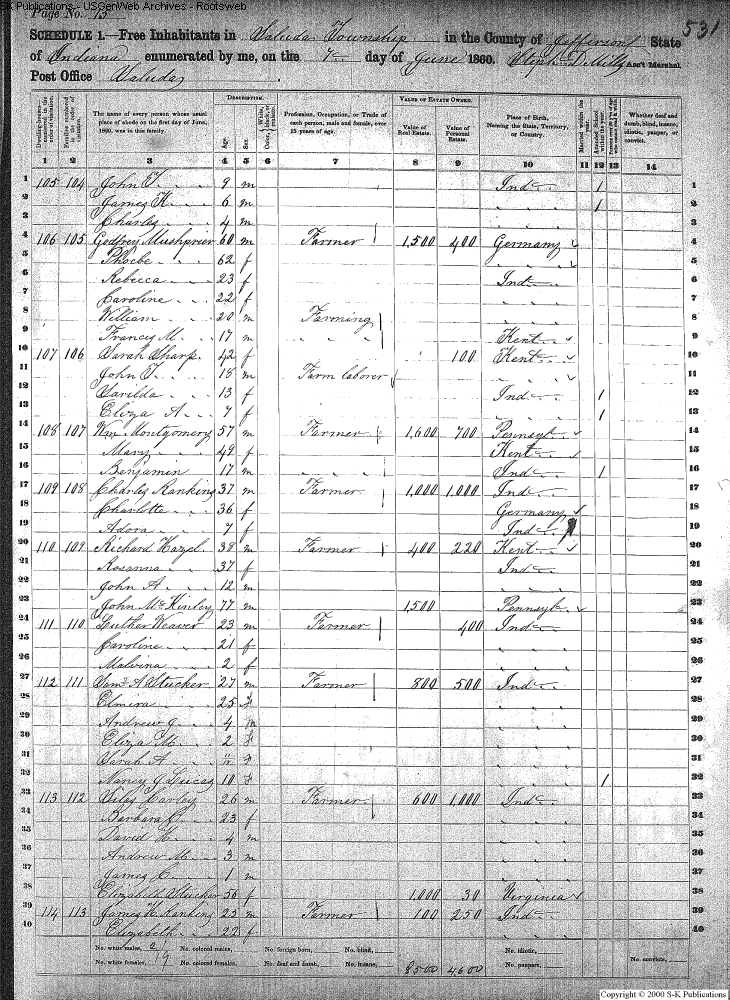 S-K Publications - USGenWeb Archives - Rootsweb
Page No. 15
531
SCHEDULE 1.—Free Inhabitants in Saluda Township in the County of Jefferson State
of Indiana enumerated by me, on the 7th day of June 1860. Ass't Marshal.
Post Office Saluda
Dwelling-houses—numbered in the order of visitation.
Families numbered in the order of visitation.
The name of every person whose usual place of abode on the first day of June, 1860, was in this family.
DESCRIPTION.
Age.
Sex.
Color, White, black, or mulatto.
Profession, Occupation, or Trade of each person, male and female, over 15 years of age.
VALUE OF ESTATE OWNED.
Value of Real Estate.
Value of Personal Estate.
Place of Birth, Naming the State, Territory, or Country.
Married within the year.
Attended School within the year.
Whether deaf and dumb, blind, insane, idiotic, pauper, or convict.
1 2 3 4 5 6 7 8 9 10 11 12 13 14
1 105 104 John T. 9 m Ind 1 1
2 James K. 6 m " 1 2
3 Charles 4 m " 3
4 106 105 Godfrey 60 m Farmer 1,500 400 Germany 4
5 Phoebe 62 f " 5
6 Rebecca 23 f Ind 6
7 Caroline 22 f " 7
8 William 20 m Farming " 8
9 Francis M. 17 m " " Kent 9
10 107 106 Sarah Sharp 42 f 100 Kent 10
11 John T. 18 m Farm laborer " 11
12 Sarilda 13 f Ind 1 12
13 Eliza A. 7 f " 1 13
14 108 107 Wm Montgomery 57 m Farmer 1,600 700 Pennsyl 14
15 Mary 49 f Kent 15
16 Benjamin 17 m " " Ind 1 16
17 109 108 Charles Rankins 37 m Farmer 1,000 1,000 Ind 17
18 Charlotte 36 f Germany 18
19 Adora 7 f Ind 19
20 110 109 Richard Hazel 38 m Farmer 400 220 Kent 20
21 Rosanna 37 f Ind 21
22 John A. 12 m " 22
23 John McKinley 77 m 1,500 Pennsyl 23
24 111 110 Luther Weaver 23 m Farmer 400 Ind 24
25 Caroline 21 f " 25
26 Malvina 2 f " 26
27 112 111 Saml A Stucker 27 m Farmer 800 500 Ind 27
28 Elmira 25 f " 28
29 Andrew J. 4 m " 29
30 Eliza M. 2 f " 30
31 Sarah A. f " 31
32 Nancy J Lucas 10 f " 1 32
33 113 112 Silas Carley 26 m Farmer 600 1,000 Ind 33
34 Barbara 23 f " 34
35 David H. 4 m " 35
36 Andrew M. 3 m " 36
37 James C. 1 m " 37
38 Elizabeth Stucker 56 f 1,000 30 Virginia 38
39 114 113 James H. Rankins 25 m Farmer 100 250 Ind 39
40 Elizabeth 22 f " 40
No. white males, 21 No. colored males, No. foreign born, No. blind, No. idiotic,
No. white females, 19 No. colored females, No. deaf and dumb, No. insane, 8500 4600 No. paupers, No. convicts,
Copyright © 2000 S-K Publications